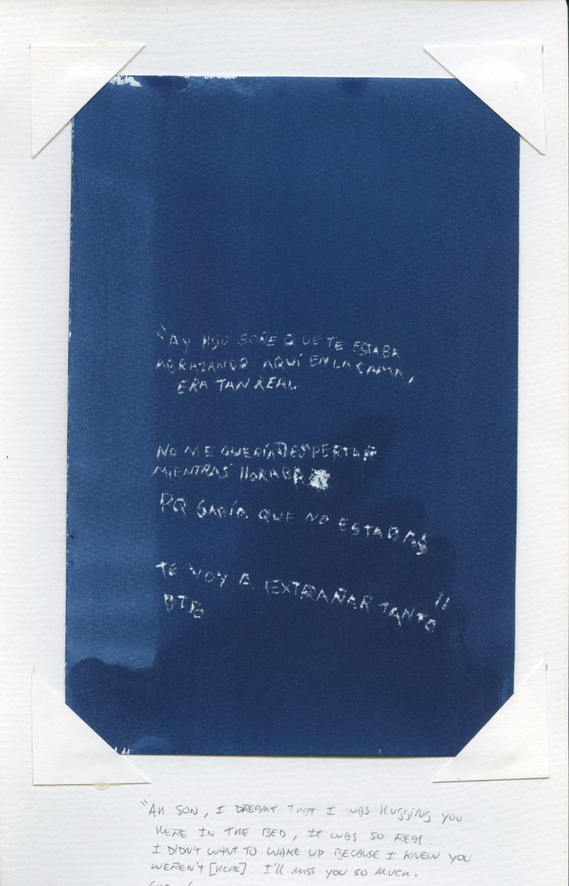 "AY HIJO SOÑE QUE TE ESTABA
ABRAZANDO AQUÍ EN LA CAMA,
ERA TAN REAL
NO ME QUERÍA DESPERTAR
MIENTRAS LLORABA
PQ SABÍA QUE NO ESTABAS
TE VOY A EXTRAÑAR TANTO"
"AH SON, I DREAMT THAT I WAS HUGGING YOU
HERE IN THE BED, IT WAS SO REAL
I DIDN'T WANT TO WAKE UP BECAUSE I KNEW YOU
WEREN'T [HERE]. I'LL MISS YOU SO MUCH.